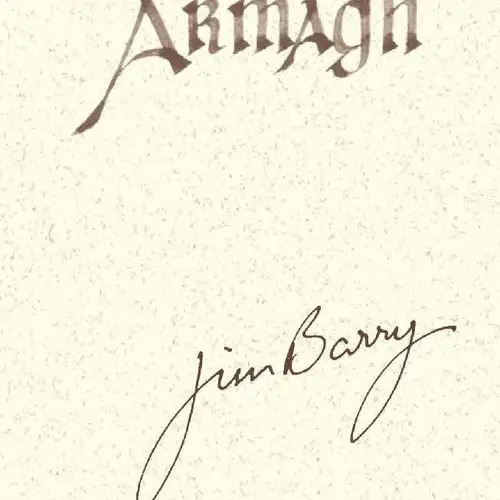 Armagh
Jim Barry